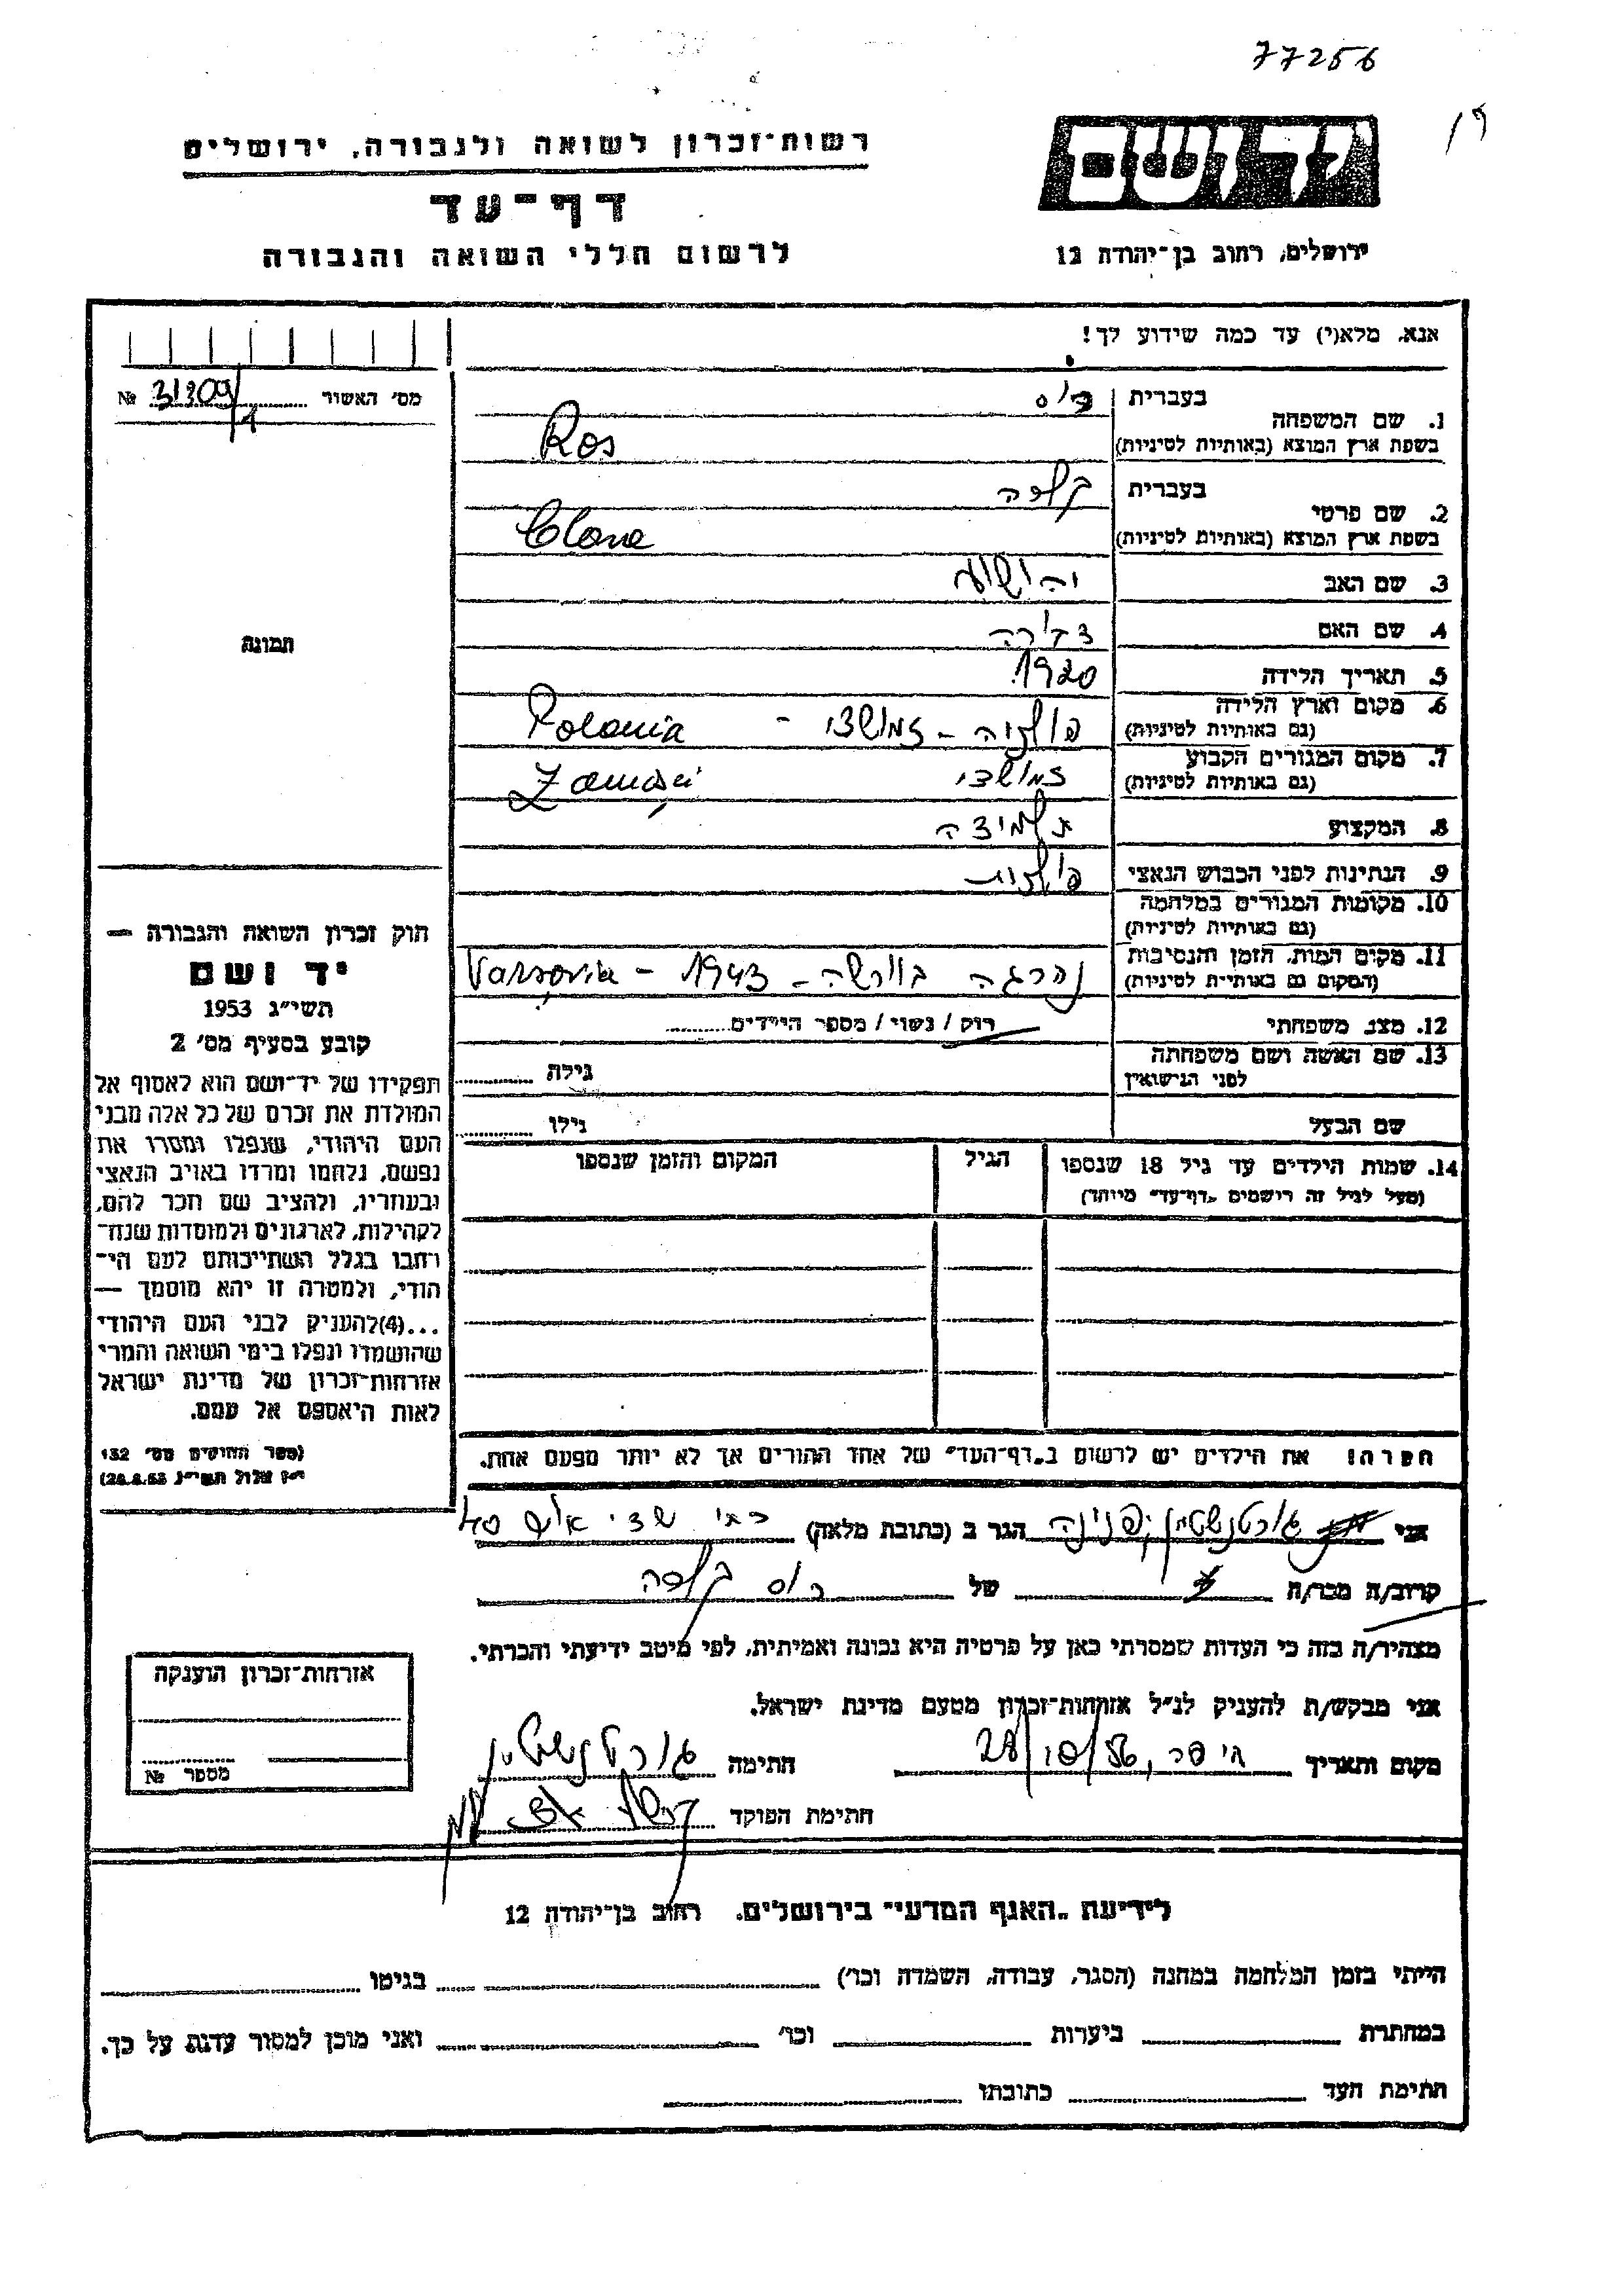 77256
יד ושם
רשות-זכרון לשואה ולגבורה, ירושלים
דף-עד
ירושלים, רחוב בן-יהודה 12
לרשום חללי השואה והגבורה
אנא, מלא(י) עד כמה שידוע לך!
מס' האשור 31309/1 №
1. שם המשפחה
בעברית רוס
בשפת ארץ המוצא (באותיות לטיניות) Ros
2. שם פרטי
בעברית קלרה
בשפת ארץ המוצא (באותיות לטיניות) Clara
3. שם האב יהושע
4. שם האם
5. תאריך הלידה 1920
6. מקום וארץ הלידה
(גם באותיות לטיניות) פולניה - זמושצ׳ - Polonia
7. מקום המגורים הקבוע
(גם באותיות לטיניות) זמושצ׳ Zamość
8. המקצוע תלמידה
9. הנתינות לפני הכבוש הנאצי פולנית
10. מקומות המגורים במלחמה
(גם באותיות לטיניות)
11. מקום המות, הזמן והנסיבות
(המקום גם באותיות לטיניות) נהרגה בוורשה - 1943 - Varsovia
12. מצב משפחתי רוק / נשוי / מספר הילדים
13. שם האשה ושם משפחתה
לפני הנישואין גילה
שם הבעל גילו
14. שמות הילדים עד גיל 18 שנספו
(מעל לגיל זה רישמים „דף-עד" מיוחד)
הגיל
המקום והזמן שנספו
תמונה
חוק זכרון השואה והגבורה —
יד ושם
תשי"ג 1953
קובע בסעיף מס' 2
תפקידו של יד-ושם הוא לאסוף אל
המולדת את זכרם של כל אלה מבני
העם היהודי, שנפלו ומסרו את
נפשם, נלחמו ומרדו באויב הנאצי
ובעוזריו, ולהציב שם וזכר להם,
לקהילות, לארגונים ולמוסדות שנח-
רבו בגלל השתייכותם לעם הי-
הודי, ולמטרה זו יהא מוסמך —
...(4)להעניק לבני העם היהודי
שהושמדו ונפלו בימי השואה והמרי
אזרחות-זכרון של מדינת ישראל
לאות היאספם אל עמם.
(ספר החוקים מס' 132
י"ז אלול תשי"ג 28.8.53)
הערה: את הילדים יש לרשום ב„דף-העד" של אחד ההורים אך לא יותר מפעם אחת.
אני גורטנשטיין פנינה הגר ב (כתובת מלאה)
קרוב/ה מכר/ה של רוס קלרה
מצהיר/ה בזה כי העדות שמסרתי כאן על פרטיה היא נכונה ואמיתית, לפי מיטב ידיעתי והכרתי.
אני מבקש/ת להעניק לנ"ל אזרחות-זכרון מטעם מדינת ישראל.
מקום ותאריך 28/10/56 חתימה גורטנשטיין
חתימת הפוקד
אזרחות-זכרון הוענקה
מספר №
לידיעת „האגף המדעי" בירושלים. רחוב בן-יהודה 12
הייתי בזמן המלחמה במחנה (הסגר, עבודה, השמדה וכו') בגיטו
במחתרת ביערות וכו' ואני מוכן למסור עדות על כך.
חתימת העד כתובתו